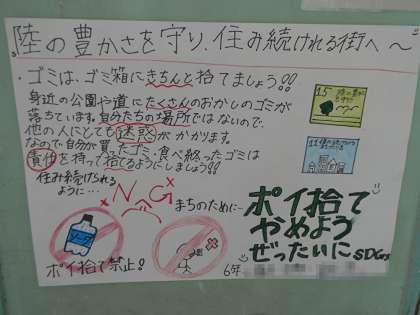 陸の豊かさを守り、住み続けれる街へ～
・ゴミは、ゴミ箱にきちんと捨てましょう!!
身近の公園や道にたくさんのおかしのゴミが
落ちています。自分たちの場所ではないので、
他の人にとても迷惑がかかります。
なので自分が買ったゴミ、食べ終ったゴミは
責任を持って捨てるようにしましょう!!
住み続けれる
ように…
まちのために…
15
11
ポイ捨て
やめよう
ぜったいに SDGs
ポイ捨て禁止!
6年